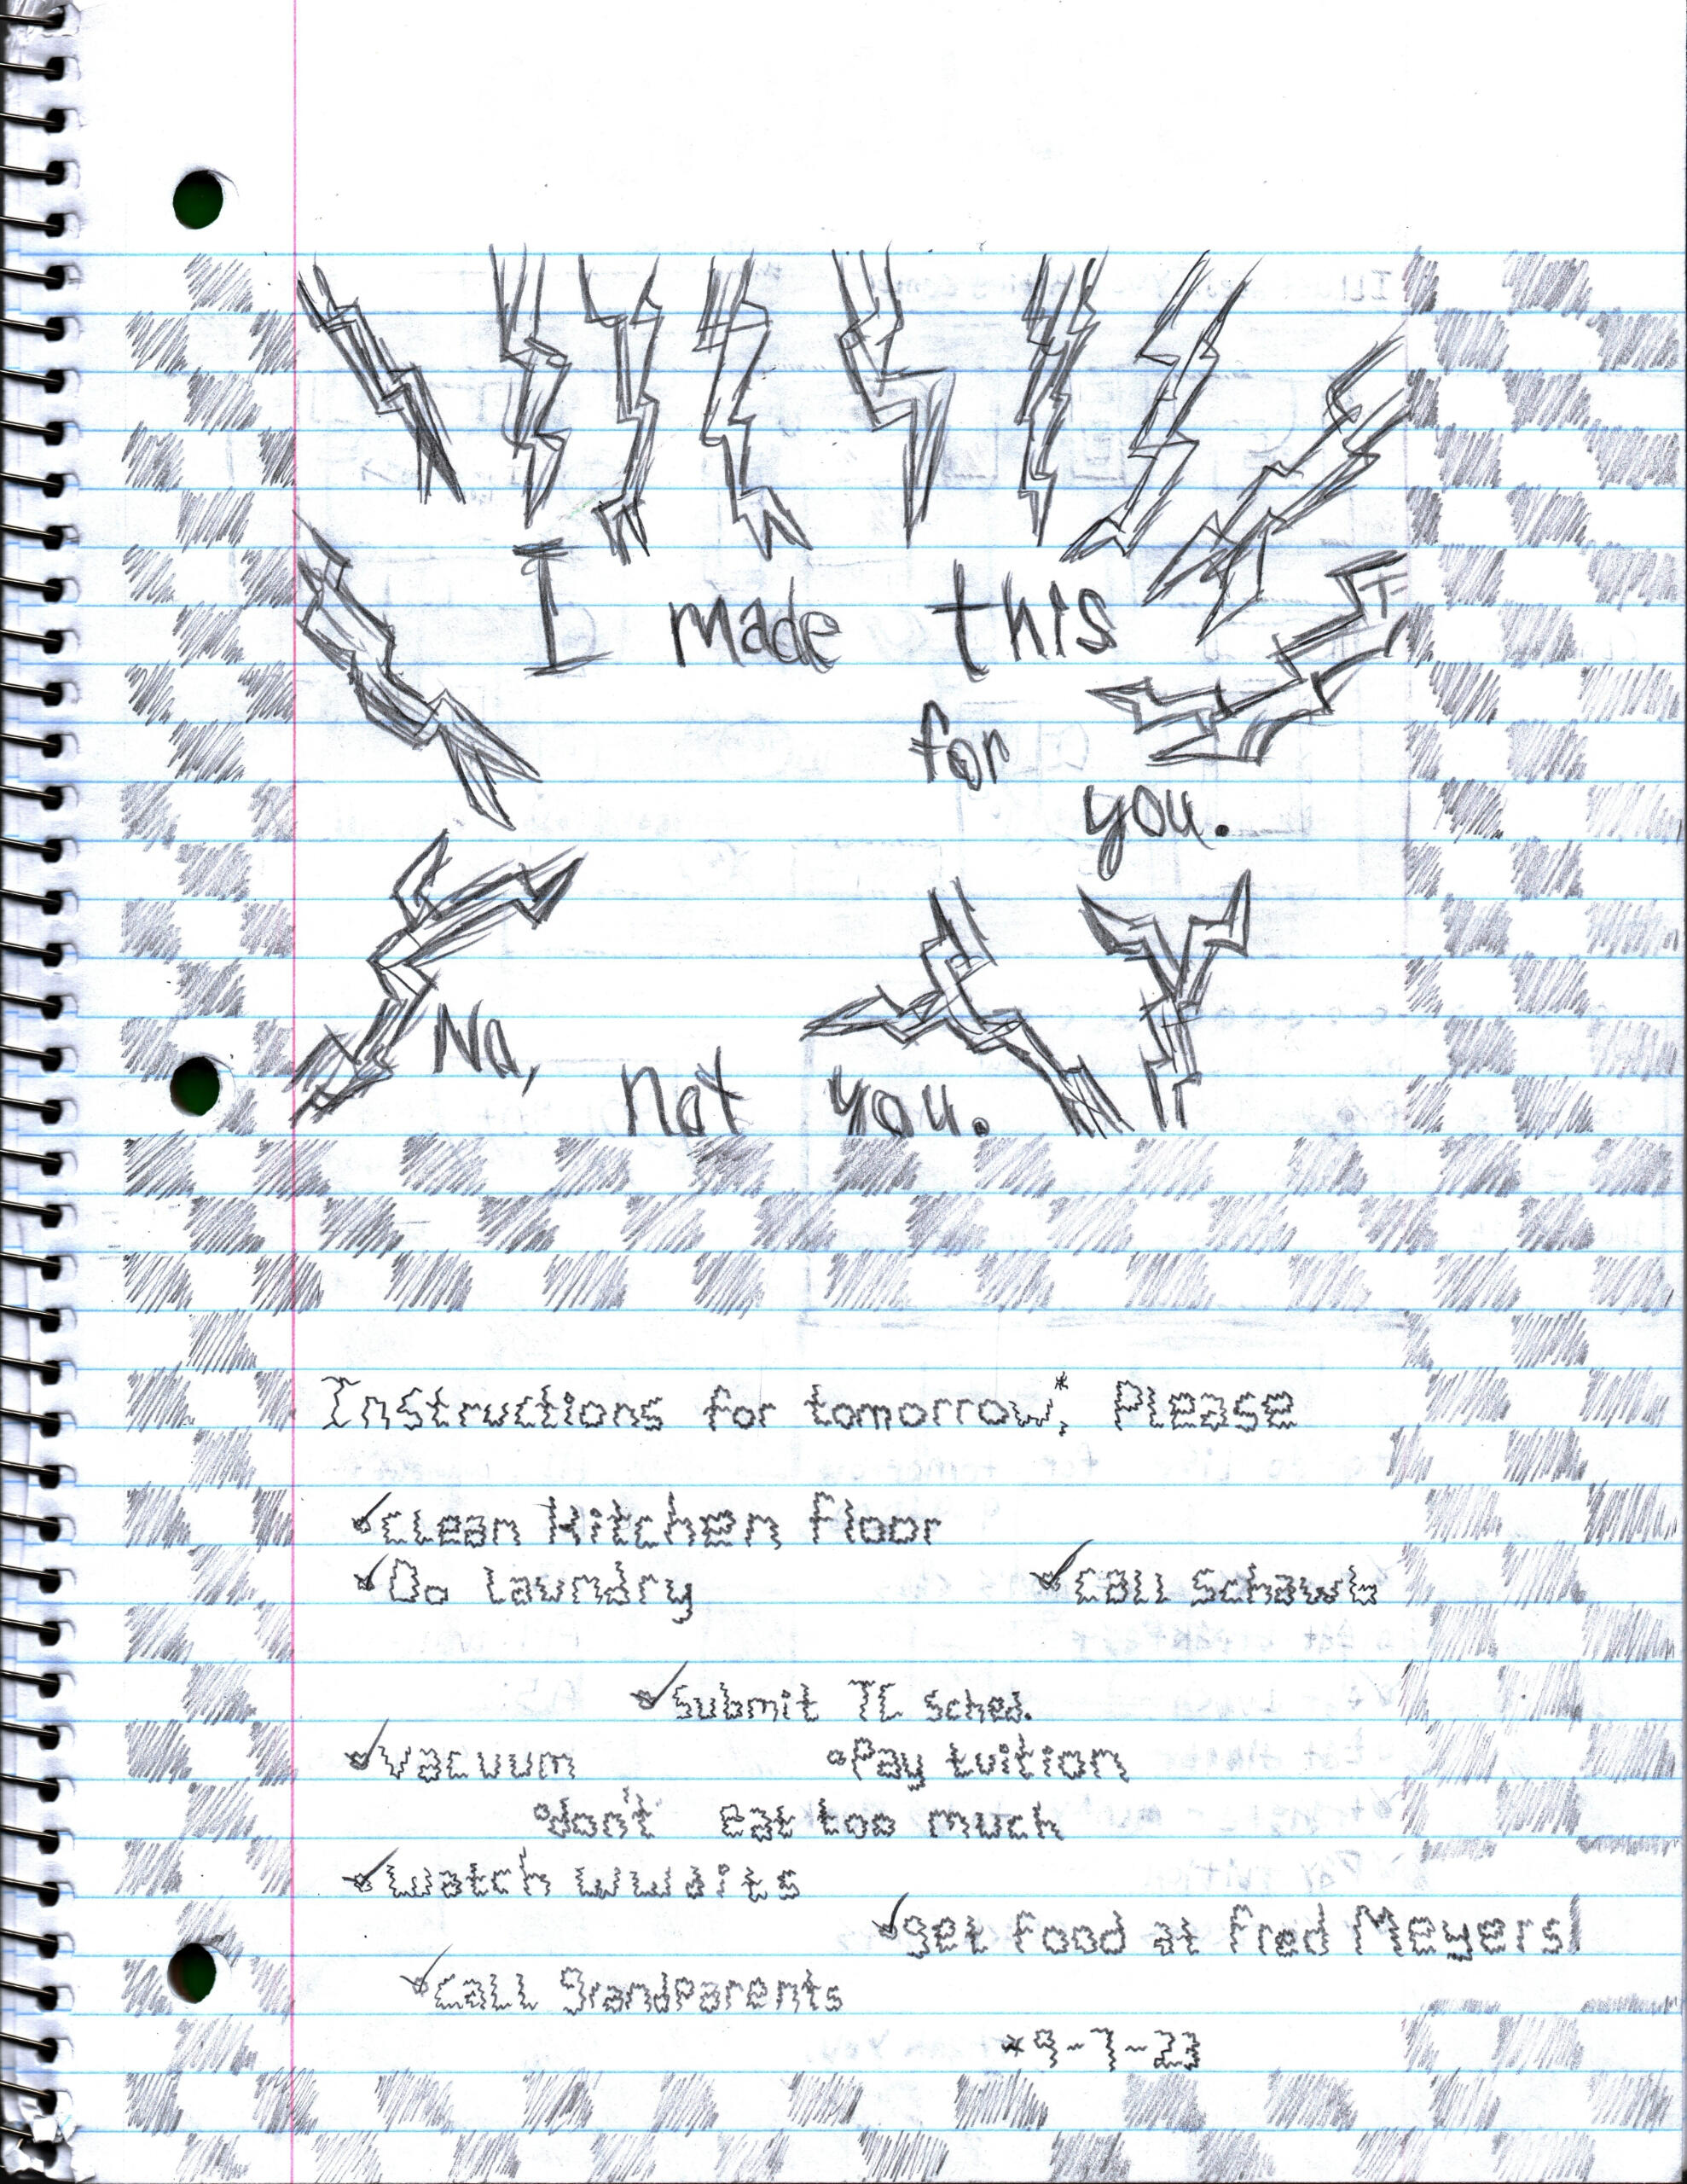 I made this
for
you.
No,
not you.
Instructions for tomorrow*; Please
✓Clean Kitchen floor
✓Do laundry ✓Call Schawk
✓Submit TC sched.
✓Vacuum •Pay tuition
•don't eat too much
✓Watch
✓get food at Fred Meyers
✓Call grandparents
*9-7-23